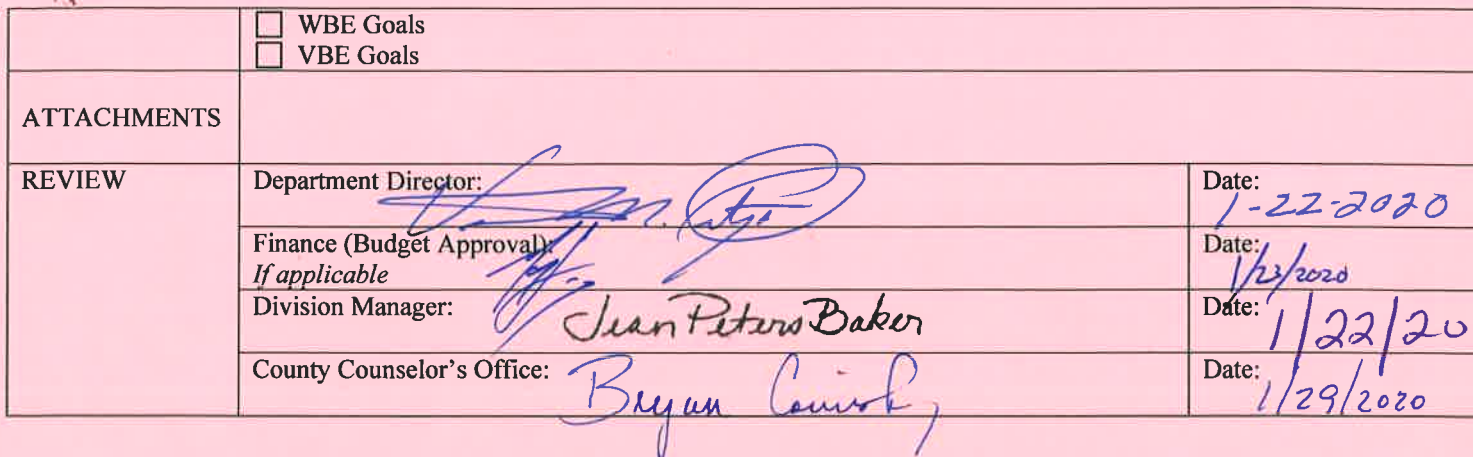 WBE Goals
VBE Goals
ATTACHMENTS
REVIEW
Department Director:
Date:
1-22-2020
Finance (Budget Approval):
If applicable
Date:
1/23/2020
Division Manager:
Jean Peters Baker
Date:
1/22/20
County Counselor's Office:
Bryan
Date:
1/29/2020